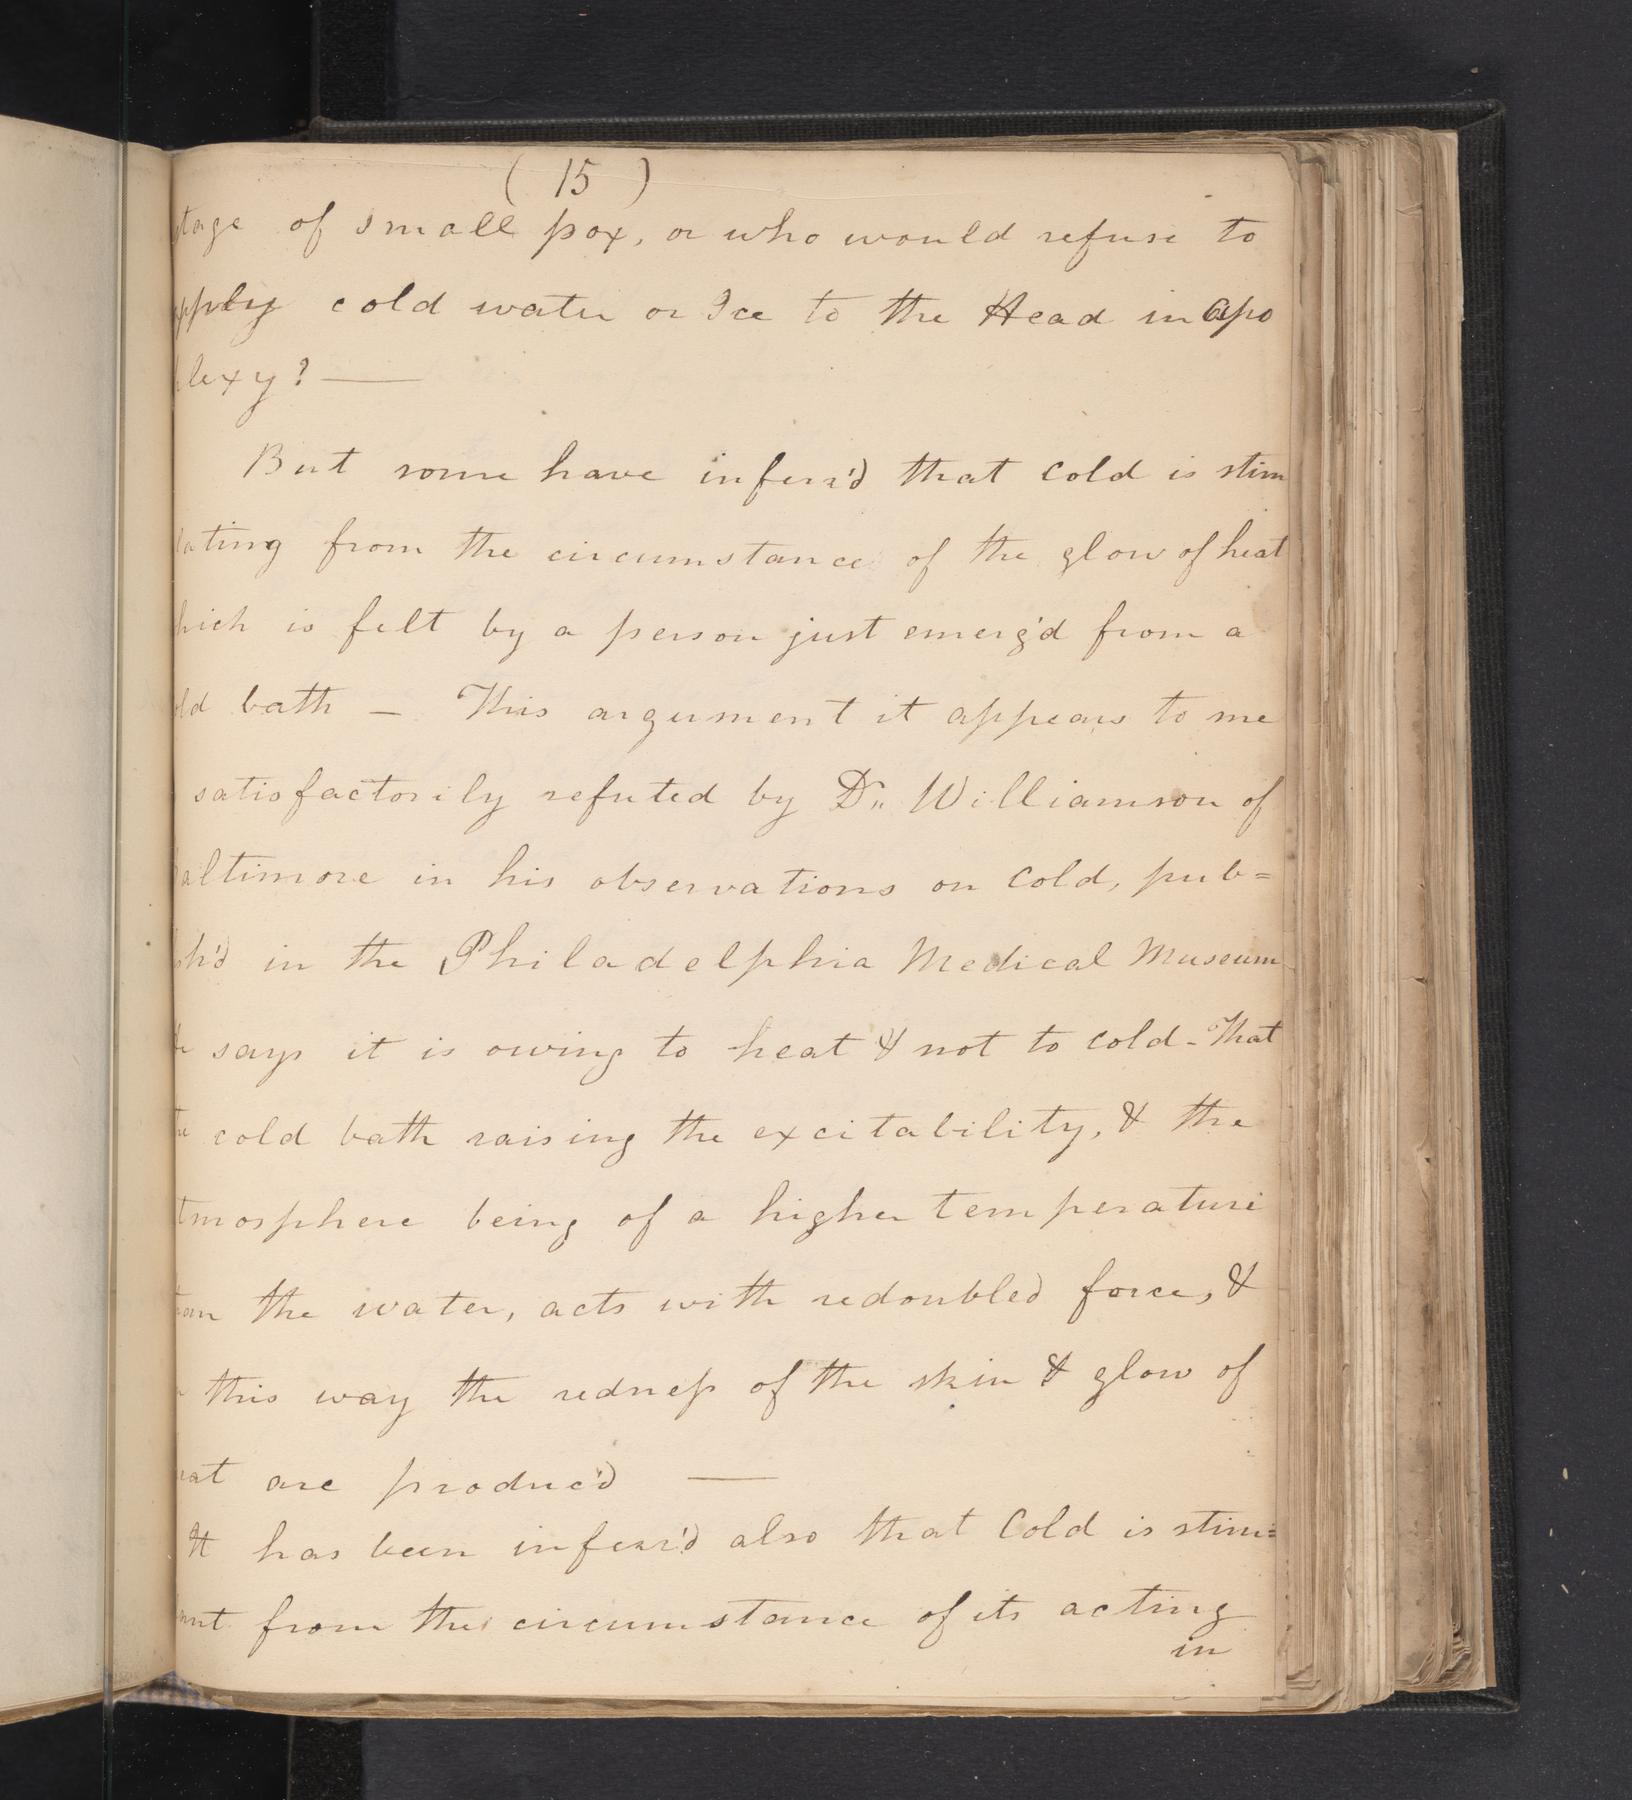 ( 15 )
stage of small pox, or who would refuse to
apply cold water or Ice to the Head in apo
plexy? —
But some have inferr'd that cold is stim
lating from the circumstance of the glow of heat
which is felt by a person just emerg'd from a
old bath — This argument it appears to me
satisfactorily refuted by Dr,, Williamson of
Baltimore in his observations on cold, pub=
sh'd in the Philadelphia Medical Museum
He says it is owing to heat & not to cold - That
the cold bath raising the excitability, & the
tmosphere being of a higher temperature
than the water, acts with redoubled force, &
this way the redness of the skin & glow of
eat are produc'd —
It has been inferr'd also that Cold is stim=
ant from the circumstance of its acting
in